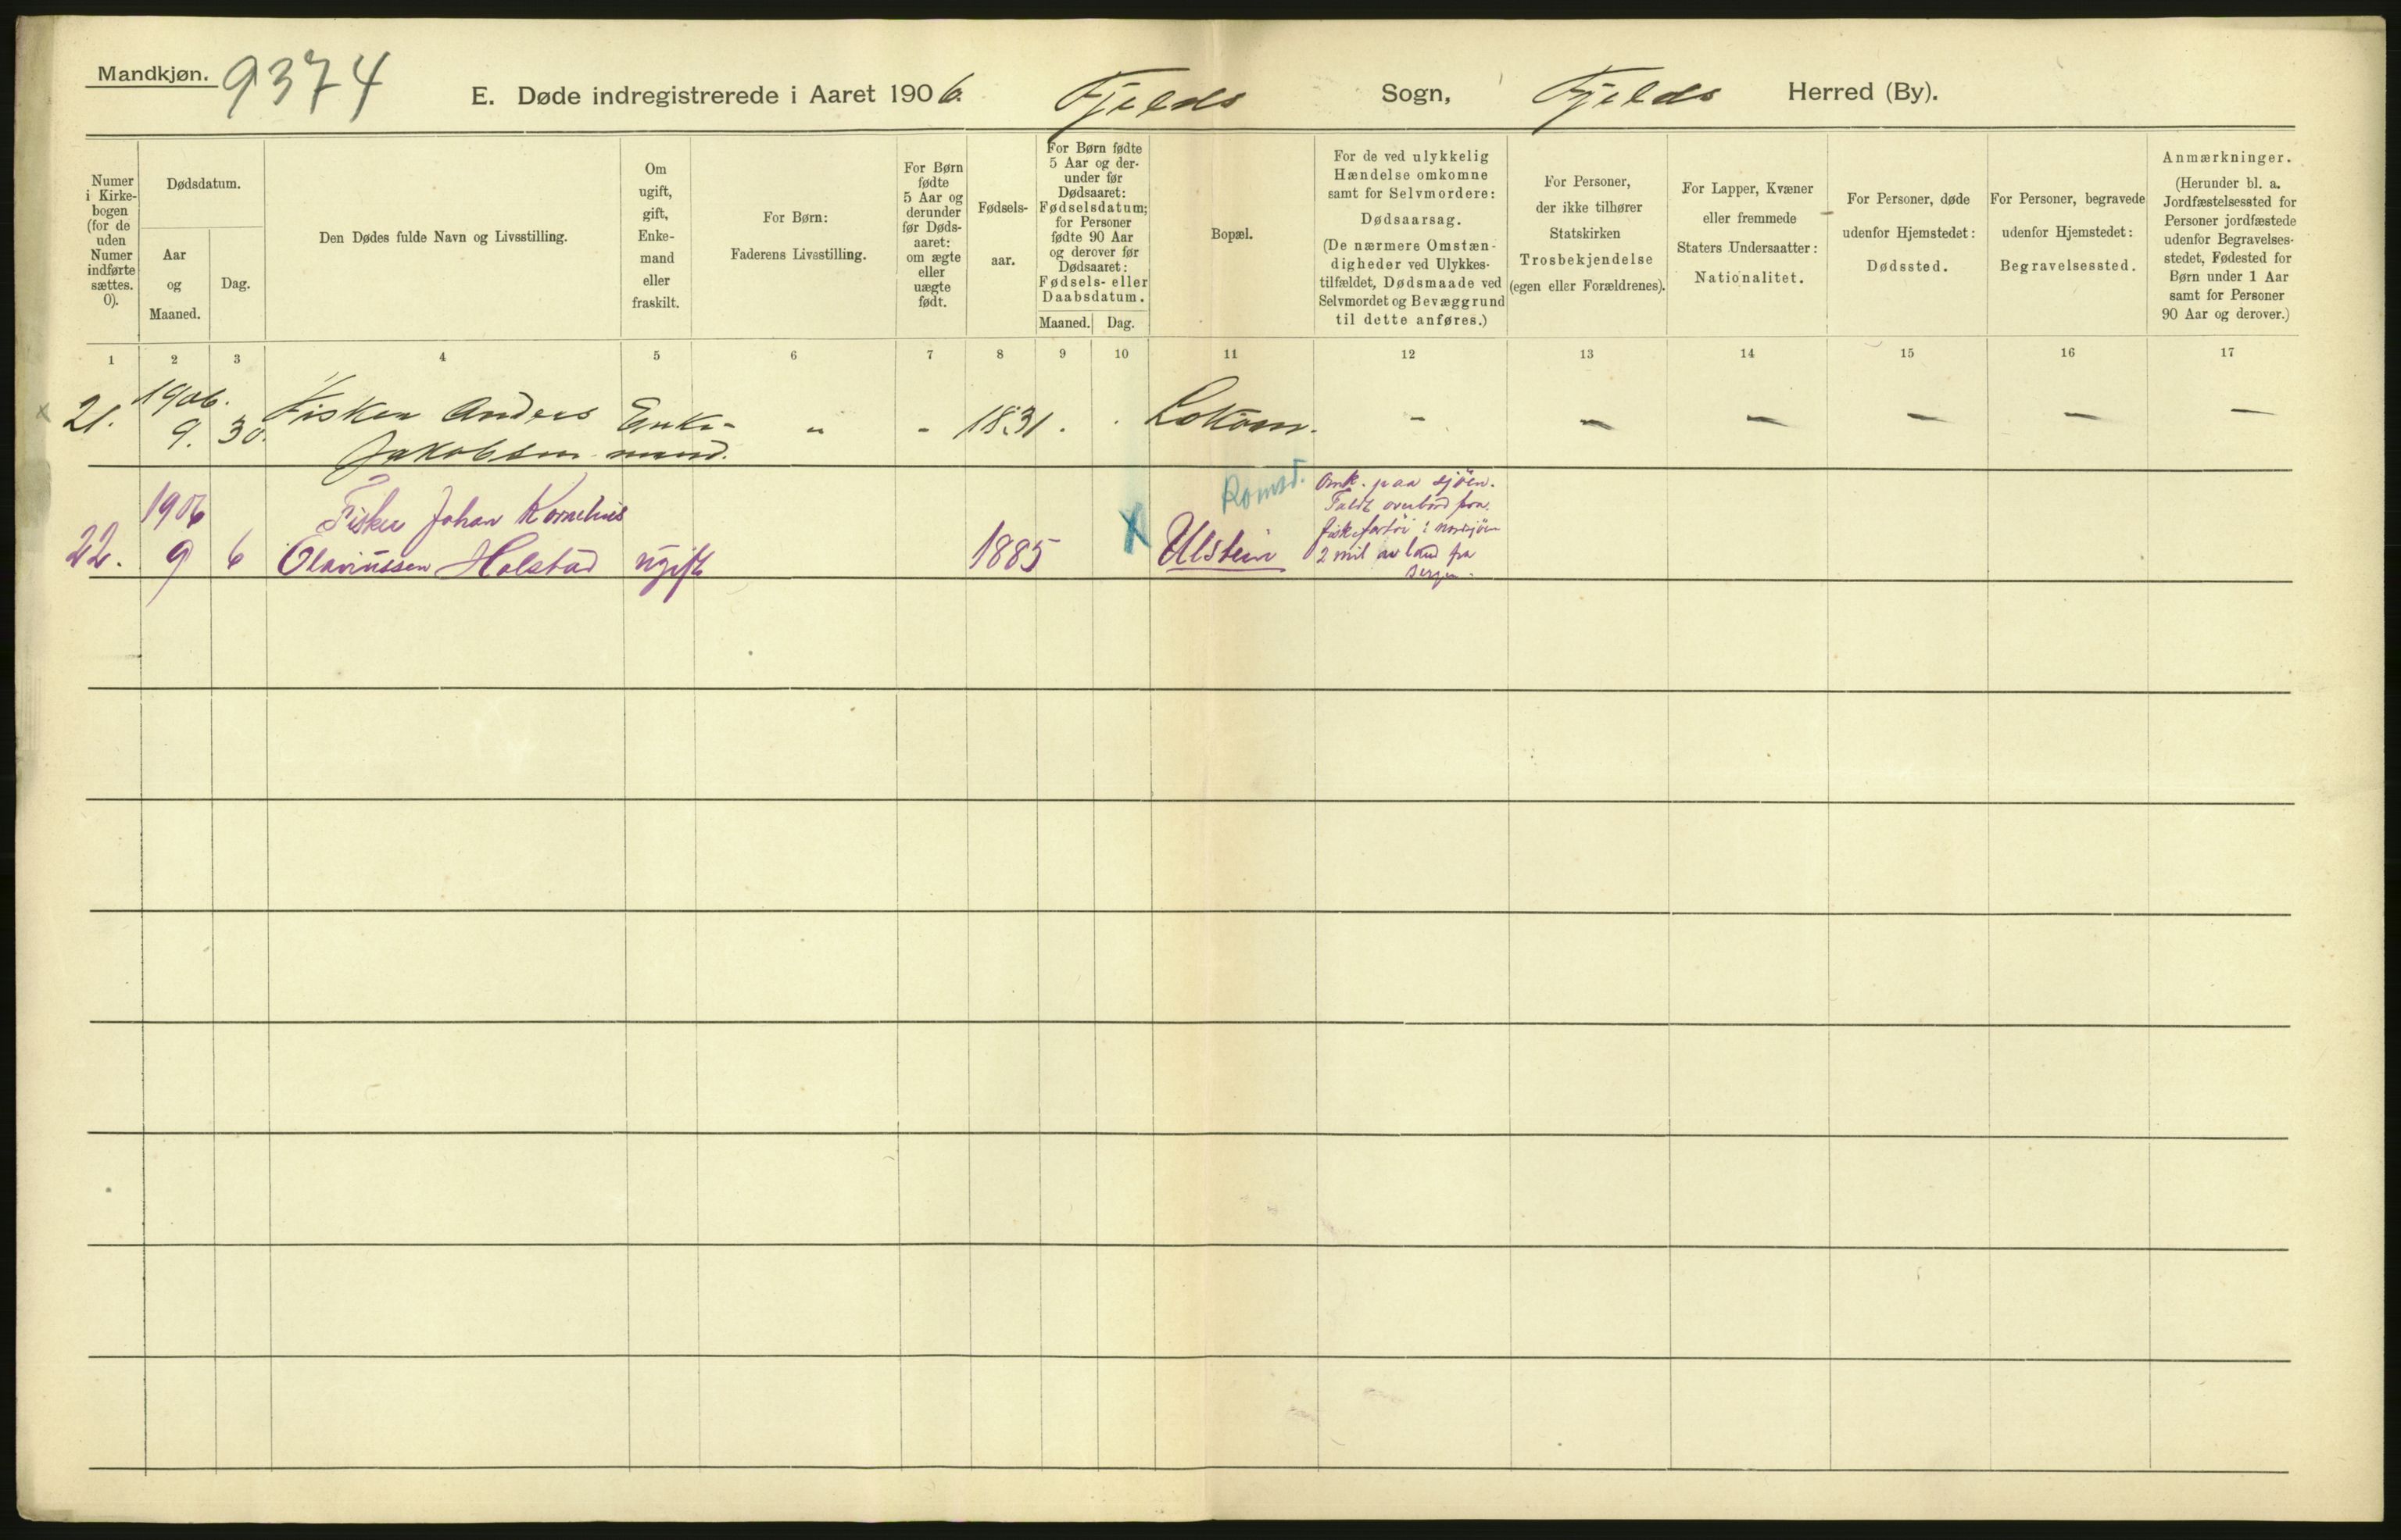 Mandkjøn. 9374
E. Døde indregistrerede i Aaret 1906. Fjelds Sogn, Fjelds Herred (By).
Numer
i Kirke-
bogen
(for de
uden
Numer
indførte
sættes.
0).
Dødsdatum.
Aar
og
Maaned.
Dag.
Den Dødes fulde Navn og Livsstilling.
Om
ugift,
gift,
Enke-
mand
eller
fraskilt.
For Børn:
Faderens Livsstilling.
For Børn
fødte
5 Aar og
derunder
før Døds-
aaret:
om ægte
eller
uægte
født.
Fødsels-
aar.
For Børn fødte
5 Aar og der-
under før
Dødsaaret:
Fødselsdatum;
for Personer
fødte 90 Aar
og derover før
Dødsaaret:
Fødsels- eller
Daabsdatum.
Maaned. Dag.
Bopæl.
For de ved ulykkelig
Hændelse omkomne
samt for Selvmordere:
Dødsaarsag.
(De nærmere Omstæn-
digheder ved Ulykkes-
tilfældet, Dødsmaade ved
Selvmordet og Bevæggrund
til dette anføres.)
For Personer,
der ikke tilhører
Statskirken
Trosbekjendelse
(egen eller Forældrenes).
For Lapper, Kvæner
eller fremmede
Staters Undersaatter:
Nationalitet.
For Personer, døde
udenfor Hjemstedet:
Dødssted.
For Personer, begravede
udenfor Hjemstedet:
Begravelsessted.
Anmærkninger.
(Herunder bl. a.
Jordfæstelsessted for
Personer jordfæstede
udenfor Begravelses-
stedet, Fødested for
Børn under 1 Aar
samt for Personer
90 Aar og derover.)
1 2 3 4 5 6 7 8 9 10 11 12 13 14 15 16 17
x 21. 1906. 9. 30. Fisker Anders Enke- " - 1831. . - - - - - -
Jakobsen mand.
Romsd.
22. 1906 9 6 Fisker Johan Kornelius
Olavinssen Holstad ugift 1885 X Ulstein
Omk. paa sjöen.
Faldt overbord fra
fiskefartöi i nordsjöen
2 mil av land fra
Bergen.